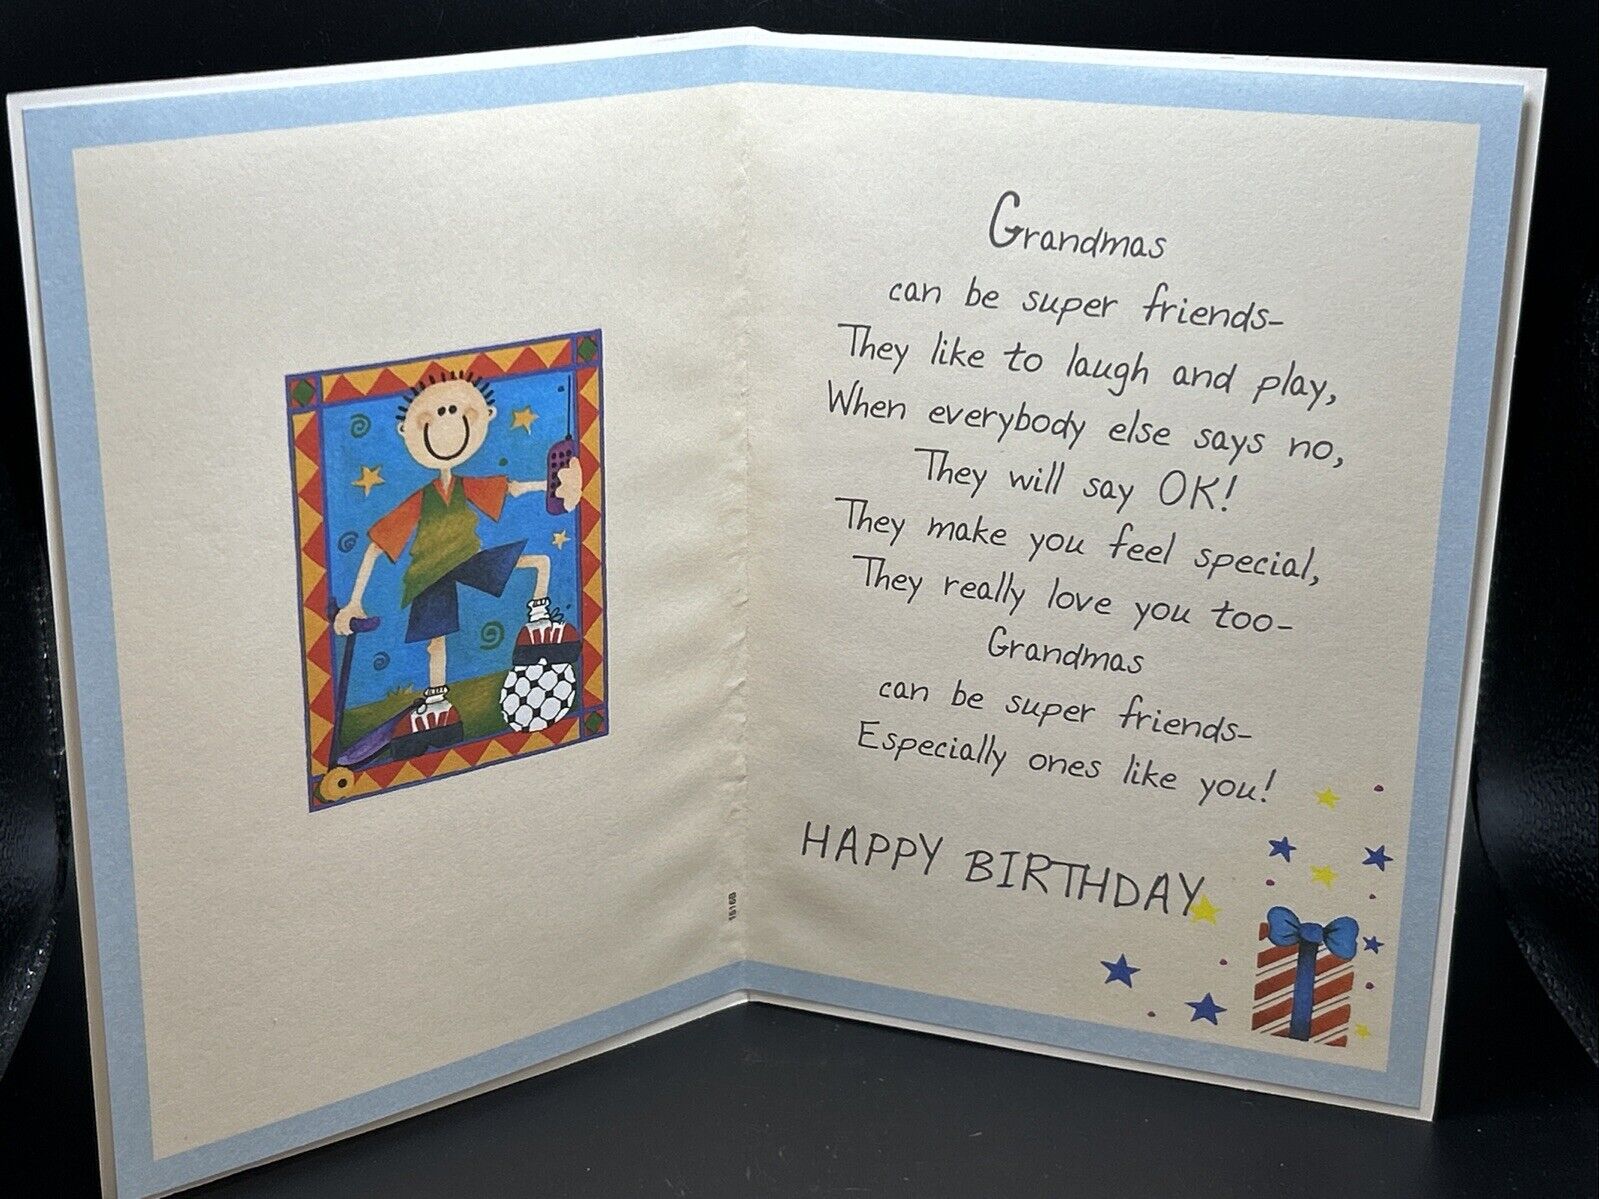 Grandmas
can be super friends-
They like to laugh and play,
When everybody else says no,
They will say OK!
They make you feel special,
They really love you too-
Grandmas
can be super friends-
Especially ones like you!
HAPPY BIRTHDAY
1816B